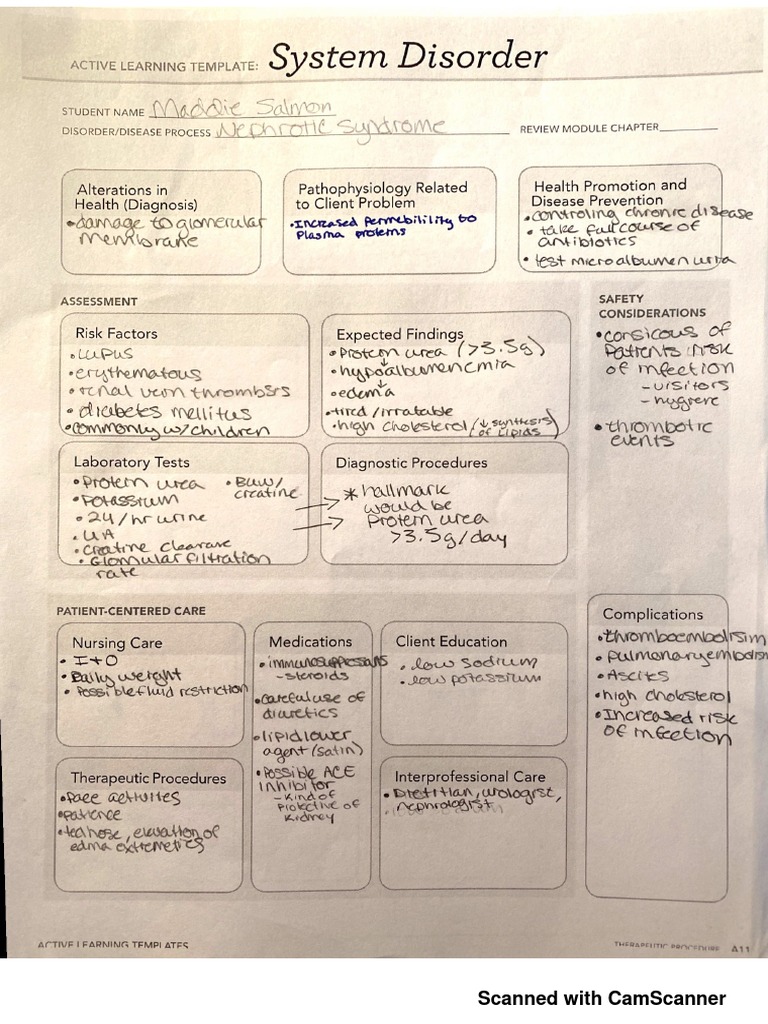 ACTIVE LEARNING TEMPLATE: System Disorder
STUDENT NAME Maddie Salmon
DISORDER/DISEASE PROCESS Nephrotic Syndrome REVIEW MODULE CHAPTER
Alterations in
Health (Diagnosis)
•damage to glomerular
membrane
Pathophysiology Related
to Client Problem
•Increased permebilility to
Plasma proteins
Health Promotion and
Disease Prevention
•controling chronic disease
• take full course of
antibiotics
• test microalbumen urea
ASSESSMENT
Risk Factors
•Lupus
•erythematous
•renal vein thrombsrs
•diabetes mellitus
•commonly w/children
Expected Findings
•Protein urea (>3.5g)
↓
•hypoalbumenemia
↓
•edema
•tired/irratable
•high cholesterol (↓ synthesis
of Lipids)
SAFETY
CONSIDERATIONS
•consicous of
Patients risk
of infection
-visitors
-hygiene
•thrombotic
events
Laboratory Tests
•Protein urea
•Potassium
•24/hr urine
•UA
•Creatine clearave
•Glomular filtration
rate
•BUN/
creatine
Diagnostic Procedures
→ * hallmark
would be
→ Protein urea
>3.5g/day
PATIENT-CENTERED CARE
Nursing Care
• I+O
• Daily weight
• Possible fluid restriction
Medications
•immunosuppessans
-steroids
•careful use of
diuretics
•lipid lower
agent (satin)
•Possible ACE
inhibitor
-kind of
protective of
kidney
Client Education
•low sodium
•low potassium
Complications
•thromboembolisim
•pulmonary embolism
•Ascites
•high cholesterol
•Increased risk
of infection
Therapeutic Procedures
•Pace activites
•patience
•ted hose, elevation of
edma extremetics
Interprofessional Care
•Dietitian, urologist,
nephrologist
ACTIVE LEARNING TEMPLATES
THERAPEUTIC PROCEDURE A11
Scanned with CamScanner